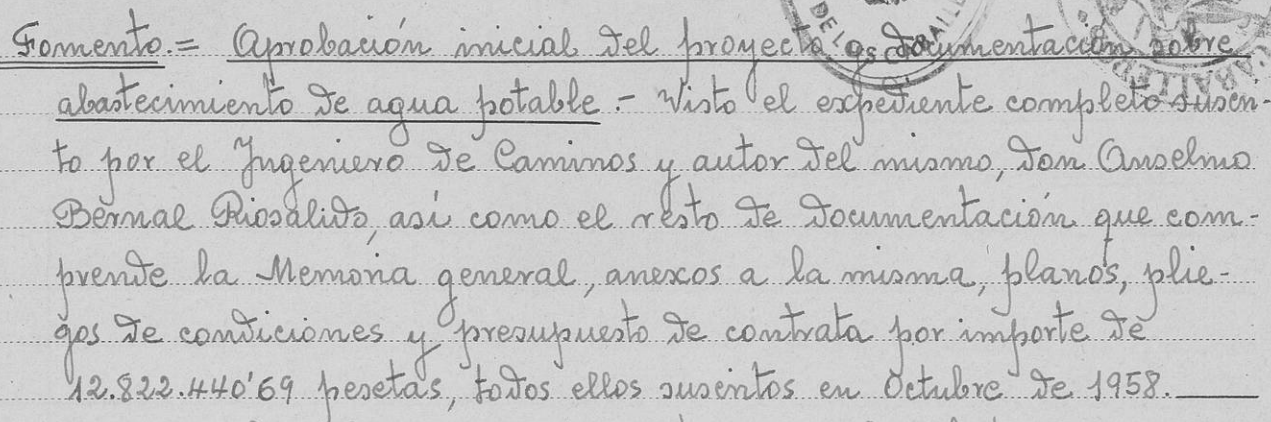 Fomento.= Aprobación inicial del proyecto y documentación sobre
abastecimiento de agua potable.- Visto el expediente completo suscri-
to por el Ingeniero de Caminos y autor del mismo, Don Anselmo
Bernal Riosalido, así como el resto de documentación que com-
prende la Memoria general, anexos a la misma, planos, plie-
gos de condiciones y presupuesto de contrata por importe de
12.822.440'69 pesetas, todos ellos suscritos en Octubre de 1958.